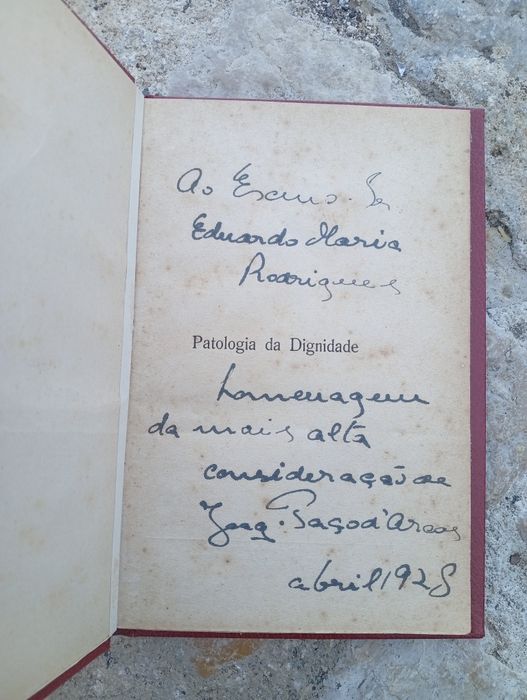 Ao Exmo. Sr
Eduardo Maria
Rodrigues
Patologia da Dignidade
homenagem
da mais alta
consideração de
Joaq. Paço d'Arcos
abril 1928